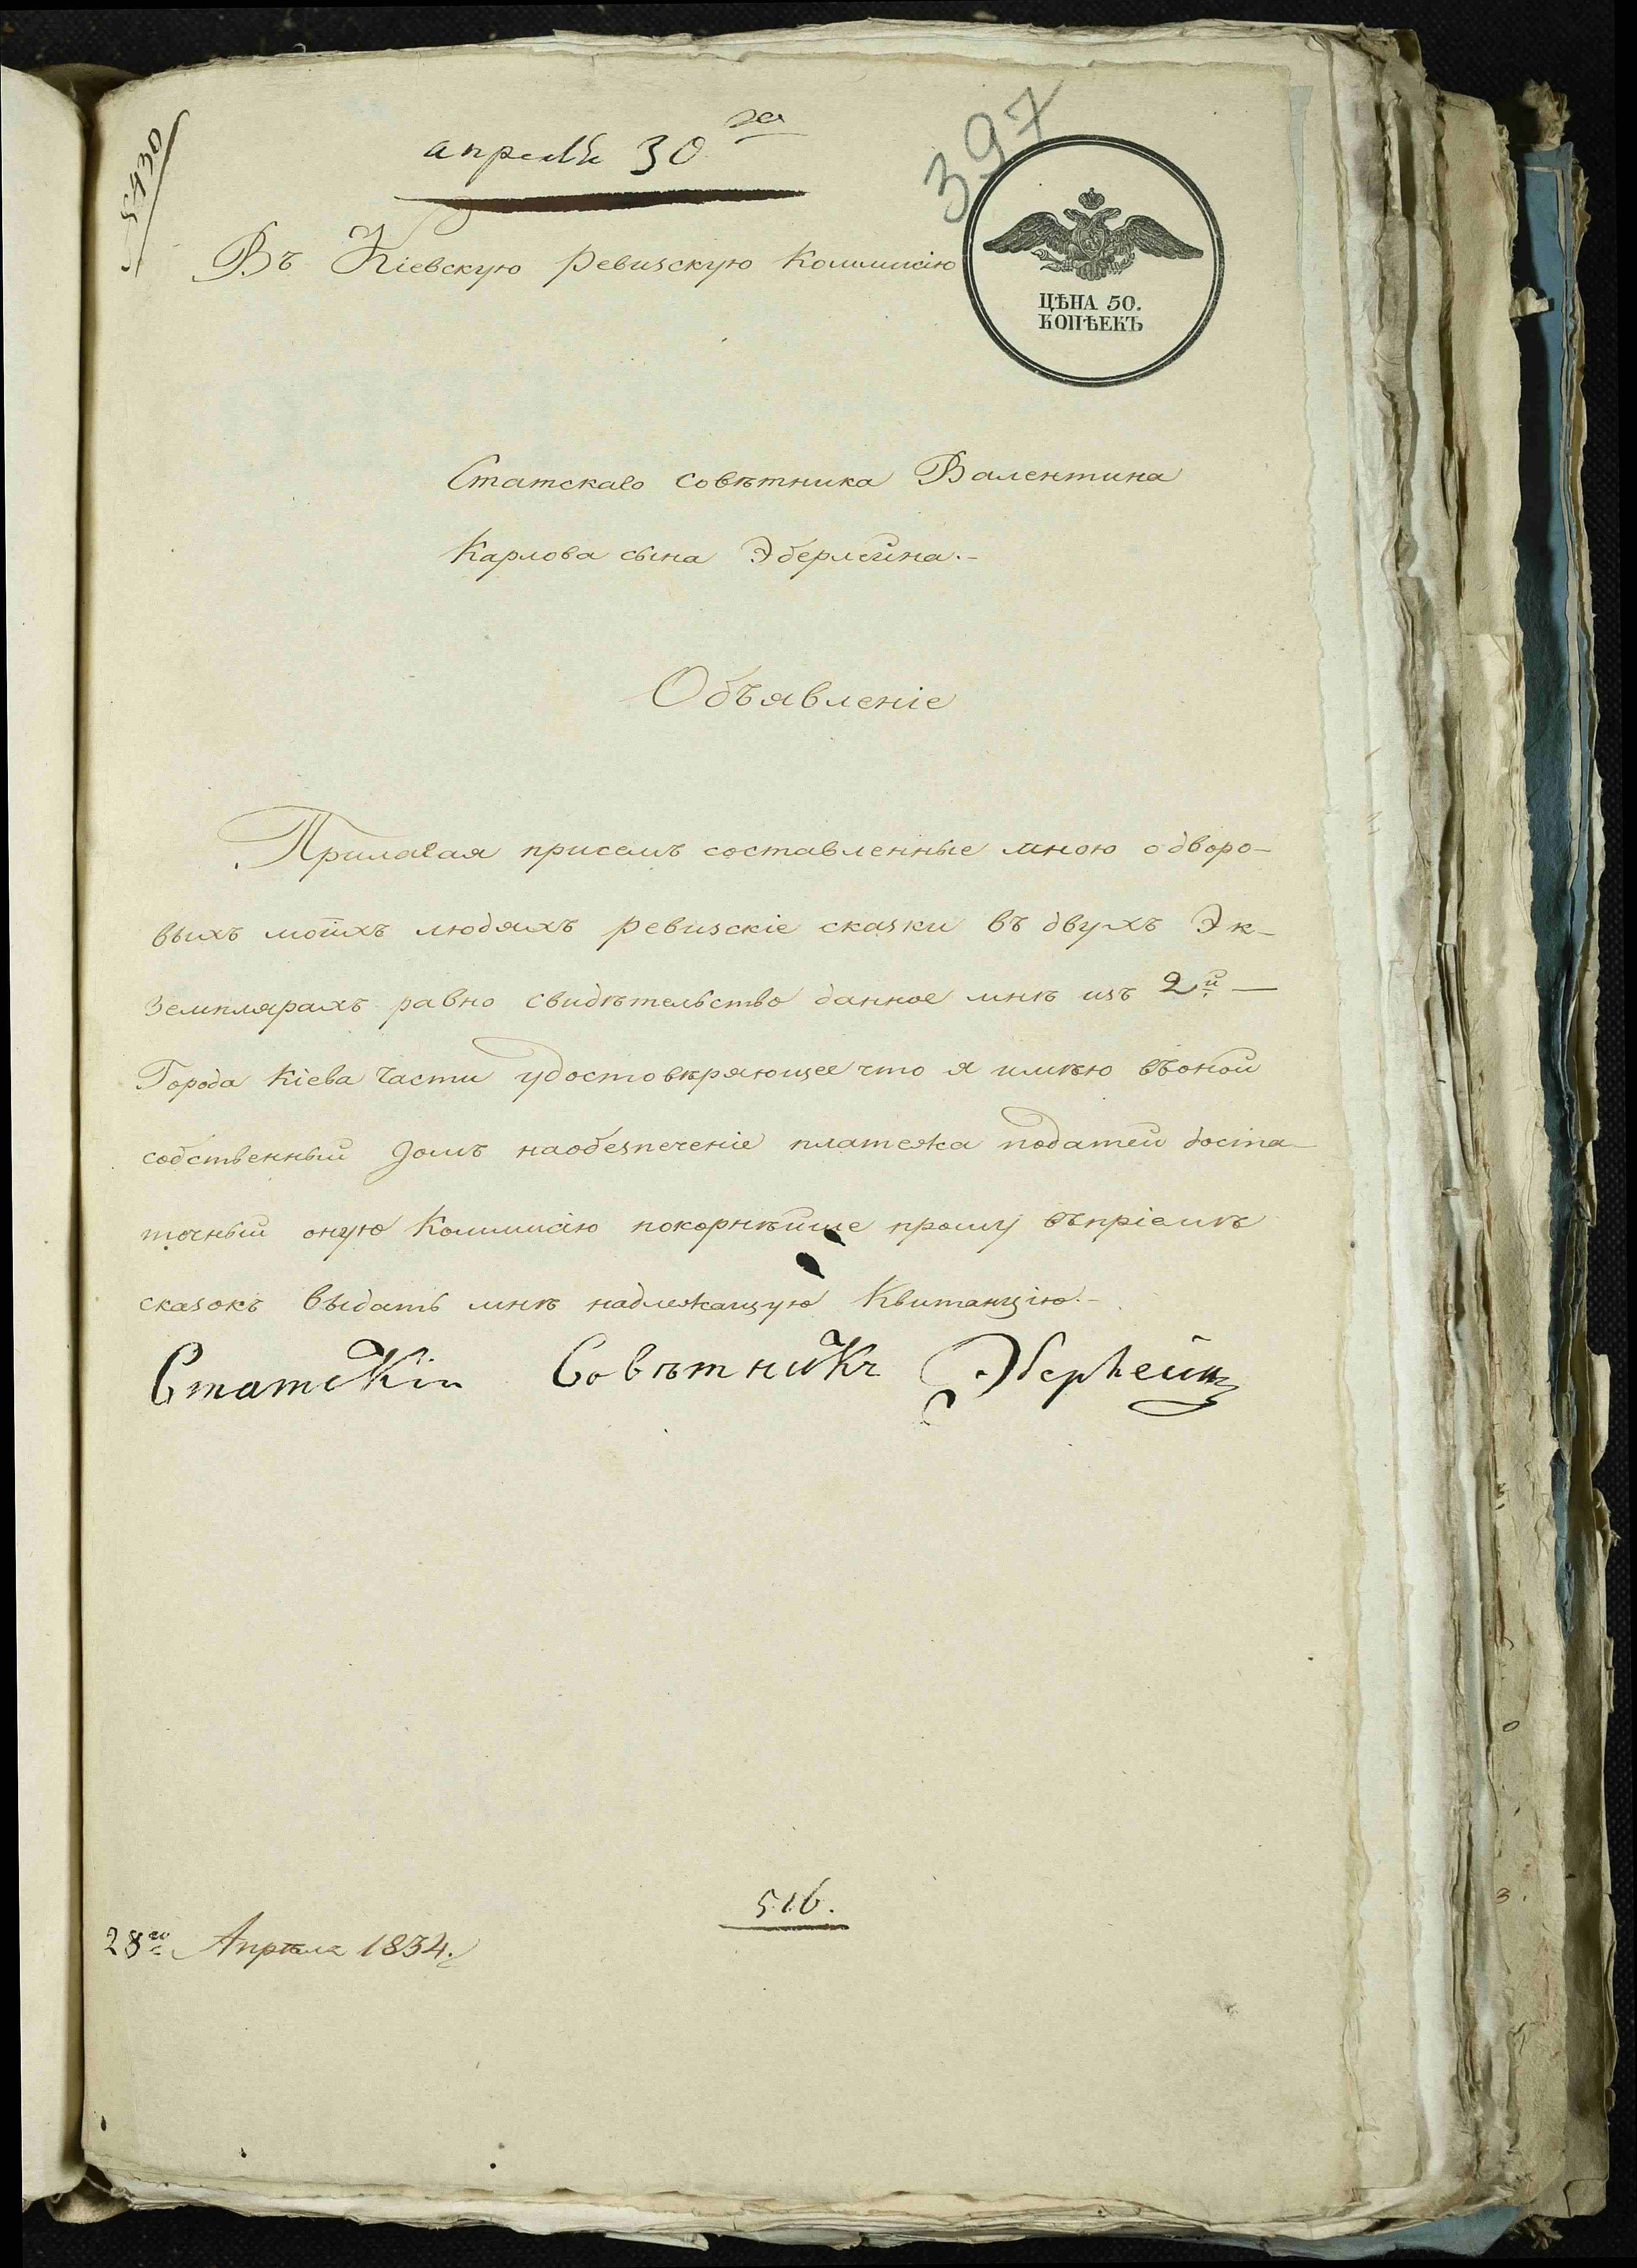 5430
апреля 30 го
397
Въ Кіевскую ревизскую Коммисію
ЦѢНА 50.
КОПѢЕКЪ
Статскаго совѣтника Валентина
Карлова сына Эберлейна.-
Объявленіе
Прилагая присемъ составленные мною одворо-
выхъ моихъ людяхъ ревизскіе сказки въ двухъ Эк-
земплярахъ равно свидѣтельство данное мнѣ изъ 2й —
Города Кіева части удостовѣряющее что я имѣю въоной
собственный домъ наобезпеченіе платежа податей доста-
точный оную Коммисію покорнѣйше прошу въпріемѣ
сказокъ выдать мнѣ надлежащую Квитанцію.-
Статскій Совѣтникъ Эберлейнъ
516.
28го Апрѣля 1834.